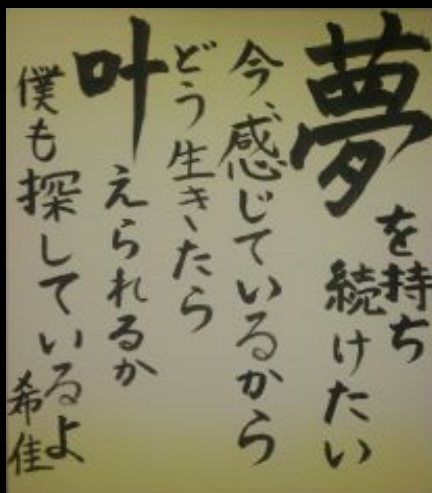 夢を持ち
続けたい
今、感じているから
どう生きたら
叶えられるか
僕も探しているよ
希佳